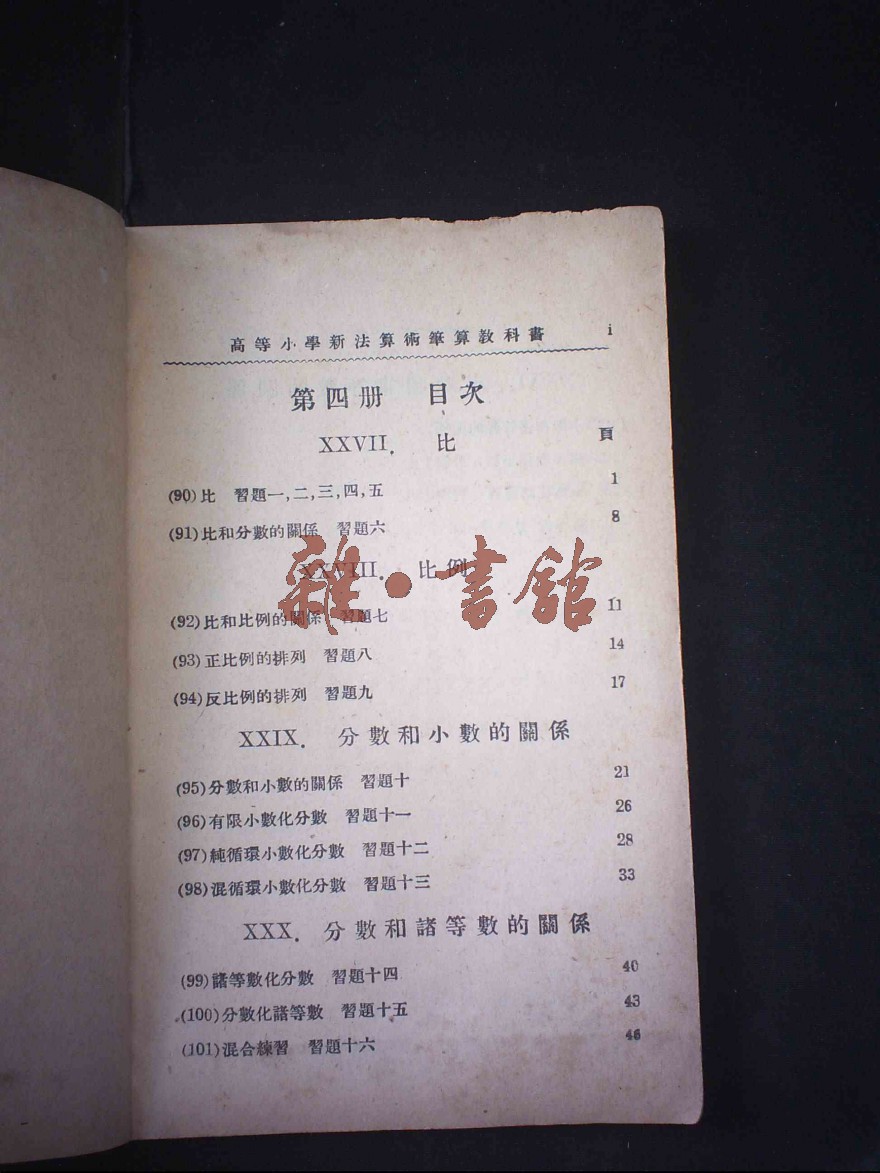 高等小學新法算術筆算教科書 i
第四册 目次
XXVII. 比 頁
(90)比 習題一,二,三,四,五 1
(91)比和分數的關係 習題六 8
XXVIII. 比例
雜·書館
(92)比和比例的關係 習題七 11
(93)正比例的排列 習題八 14
(94)反比例的排列 習題九 17
XXIX. 分數和小數的關係
(95)分數和小數的關係 習題十 21
(96)有限小數化分數 習題十一 26
(97)純循環小數化分數 習題十二 28
(98)混循環小數化分數 習題十三 33
XXX. 分數和諸等數的關係
(99)諸等數化分數 習題十四 40
(100)分數化諸等數 習題十五 43
(101)混合練習 習題十六 46